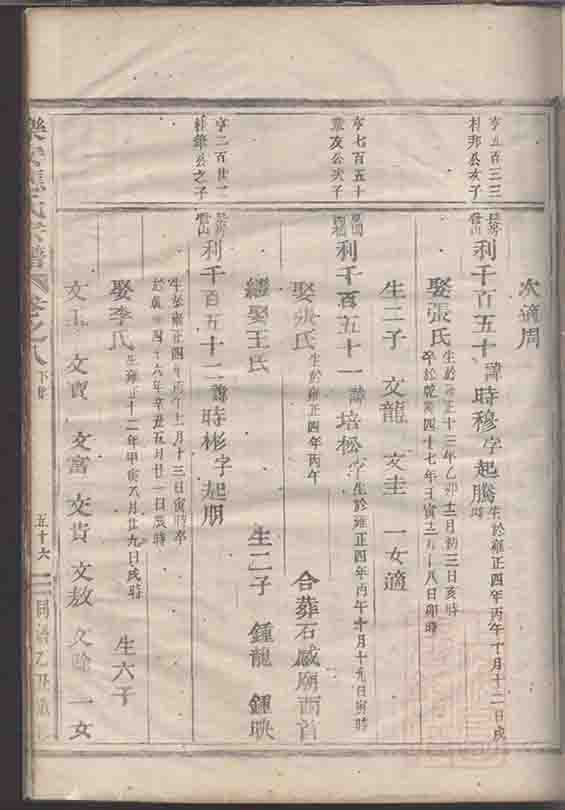 亨五百三三
村邦公次子
亨七百五十
章友公次子
亨二百廿一
桂華公之子
次適周
利千百五十 諱時穆字起騰 生於雍正四年丙午十月十二日戌
時
娶張氏 生於雍正十三年乙卯十二月初三日亥時
卒於乾隆四十七年壬寅十二月十八日卯時
生二子 文龍 文圭 一女適
利千百五十一 諱培松字 生於雍正四年丙午十月十九日寅時
娶張氏 生於雍正四年丙午 合葬石感廟西首
繼娶王氏 生二子 鍾龍 鍾映
利千百五十二 諱時彬字起朋
生於雍正四年丙午十月十三日寅時卒
於乾隆四十六年辛丑五月廿一日辰時
娶李氏 生雍正十二年甲寅八月廿九日戌時 生六子
文玉 文寶 文富 文貴 文敖 一女
氏宗譜 卷之八 五十六 同治乙丑